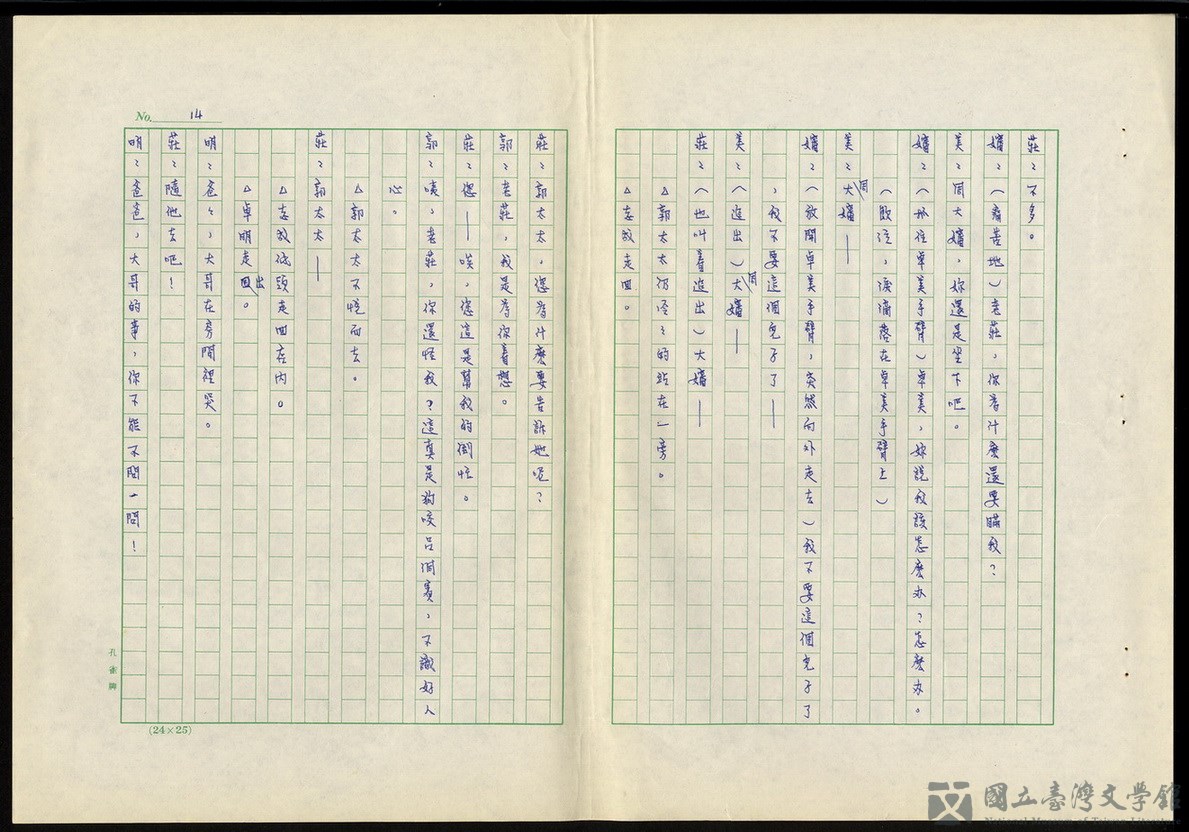 莊：不多。
嬸：（痛苦地）老莊，你為什麼還要瞞我？
美：周大嬸，妳還是坐下吧。
嬸：（抓住卓美手臂）卓美，妳說我該怎麼办？怎麼办。
（歇注，淚滴落在卓美手臂上）
美：周大嬸——
嬸：（放開卓美手臂，突然向外走去）我不要這個兒子了
，我不要這個兒子了——
美：（追出）周大嬸——
莊：（也叫着追出）大嬸——
△郭太太仍怪怪的站在一旁。
△志毅走回。
No. 14
莊：郭太太，您為什麼要告訴她呢？
郭：老莊，我是為你着想。
莊：您——唉，您這是幫我的倒忙。
郭：咦，老莊，你還怪我？這真是狗咬呂洞賓，不識好人
心。
△郭太太不悅而去。
莊：郭太太——
△志毅低頭走回店內。
△卓明走出。
明：爸爸，大哥在房間裡哭。
莊：隨他去吧！
明：爸爸，大哥的事，你不能不問一問！
孔雀牌
(24×25)
國立臺灣文學館
National Museum of Taiwan Literature